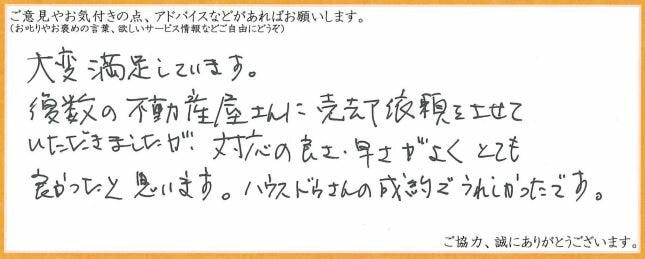 ご意見やお気付きの点、アドバイスなどがあればお願いします。
(お叱りやお褒めの言葉、欲しいサービス情報などご自由にどうぞ)
大変満足しています。
複数の不動産屋さんに売却依頼をさせて
いただきましたが、対応の良さ・早さがよくとても
良かったと思います。ハウスドゥさんの成約でうれしかったです。
ご協力、誠にありがとうございます。